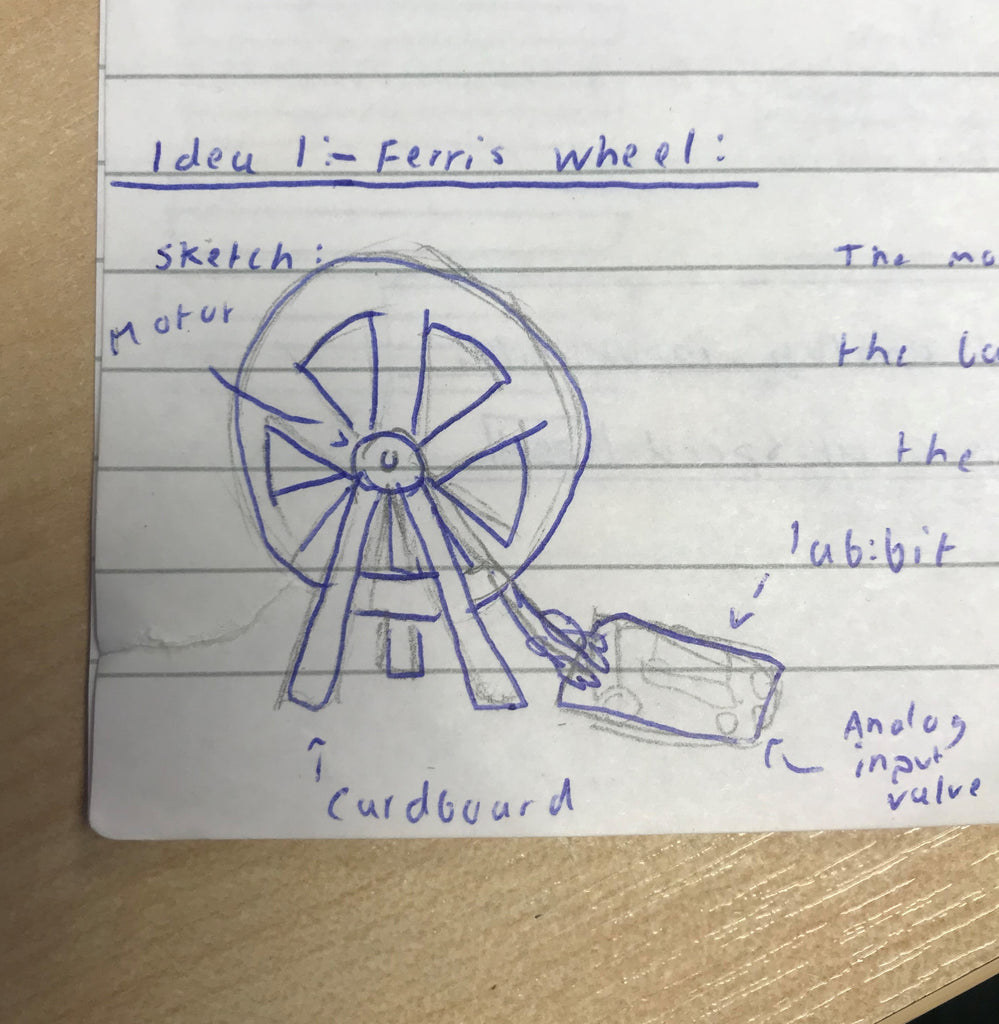 Idea 1:- Ferris wheel:
Sketch:
The
Motor
the
the
lab:bit
Analog
input
valve
Cardboard